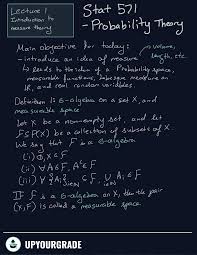 Lecture 1
Introduction to
measure theory
Stat 571
- Probability Theory
Main objective for today:
- introduce an idea of measure
→ volume,
length, etc.
↳ leads to the idea of a Probability space,
measurable functions, Lebesgue measure on
ℝ, and real random variables.
Definition 1: σ-algebra on a set X, and
measurable space
Let X be a non-empty set, and let
F ⊆ P(X) be a collection of subsets of X.
We say that F is a σ-algebra
(i) ∅, X ∈ F
(ii) ∀ A ∈ F, Aᶜ ∈ F
(iii) ∀ {Aᵢ} ⊆ F, ∪ Aᵢ ∈ F
If F is a σ-algebra on X, then the pair
(X, F) is called a measurable space.
UPYOURGRADE